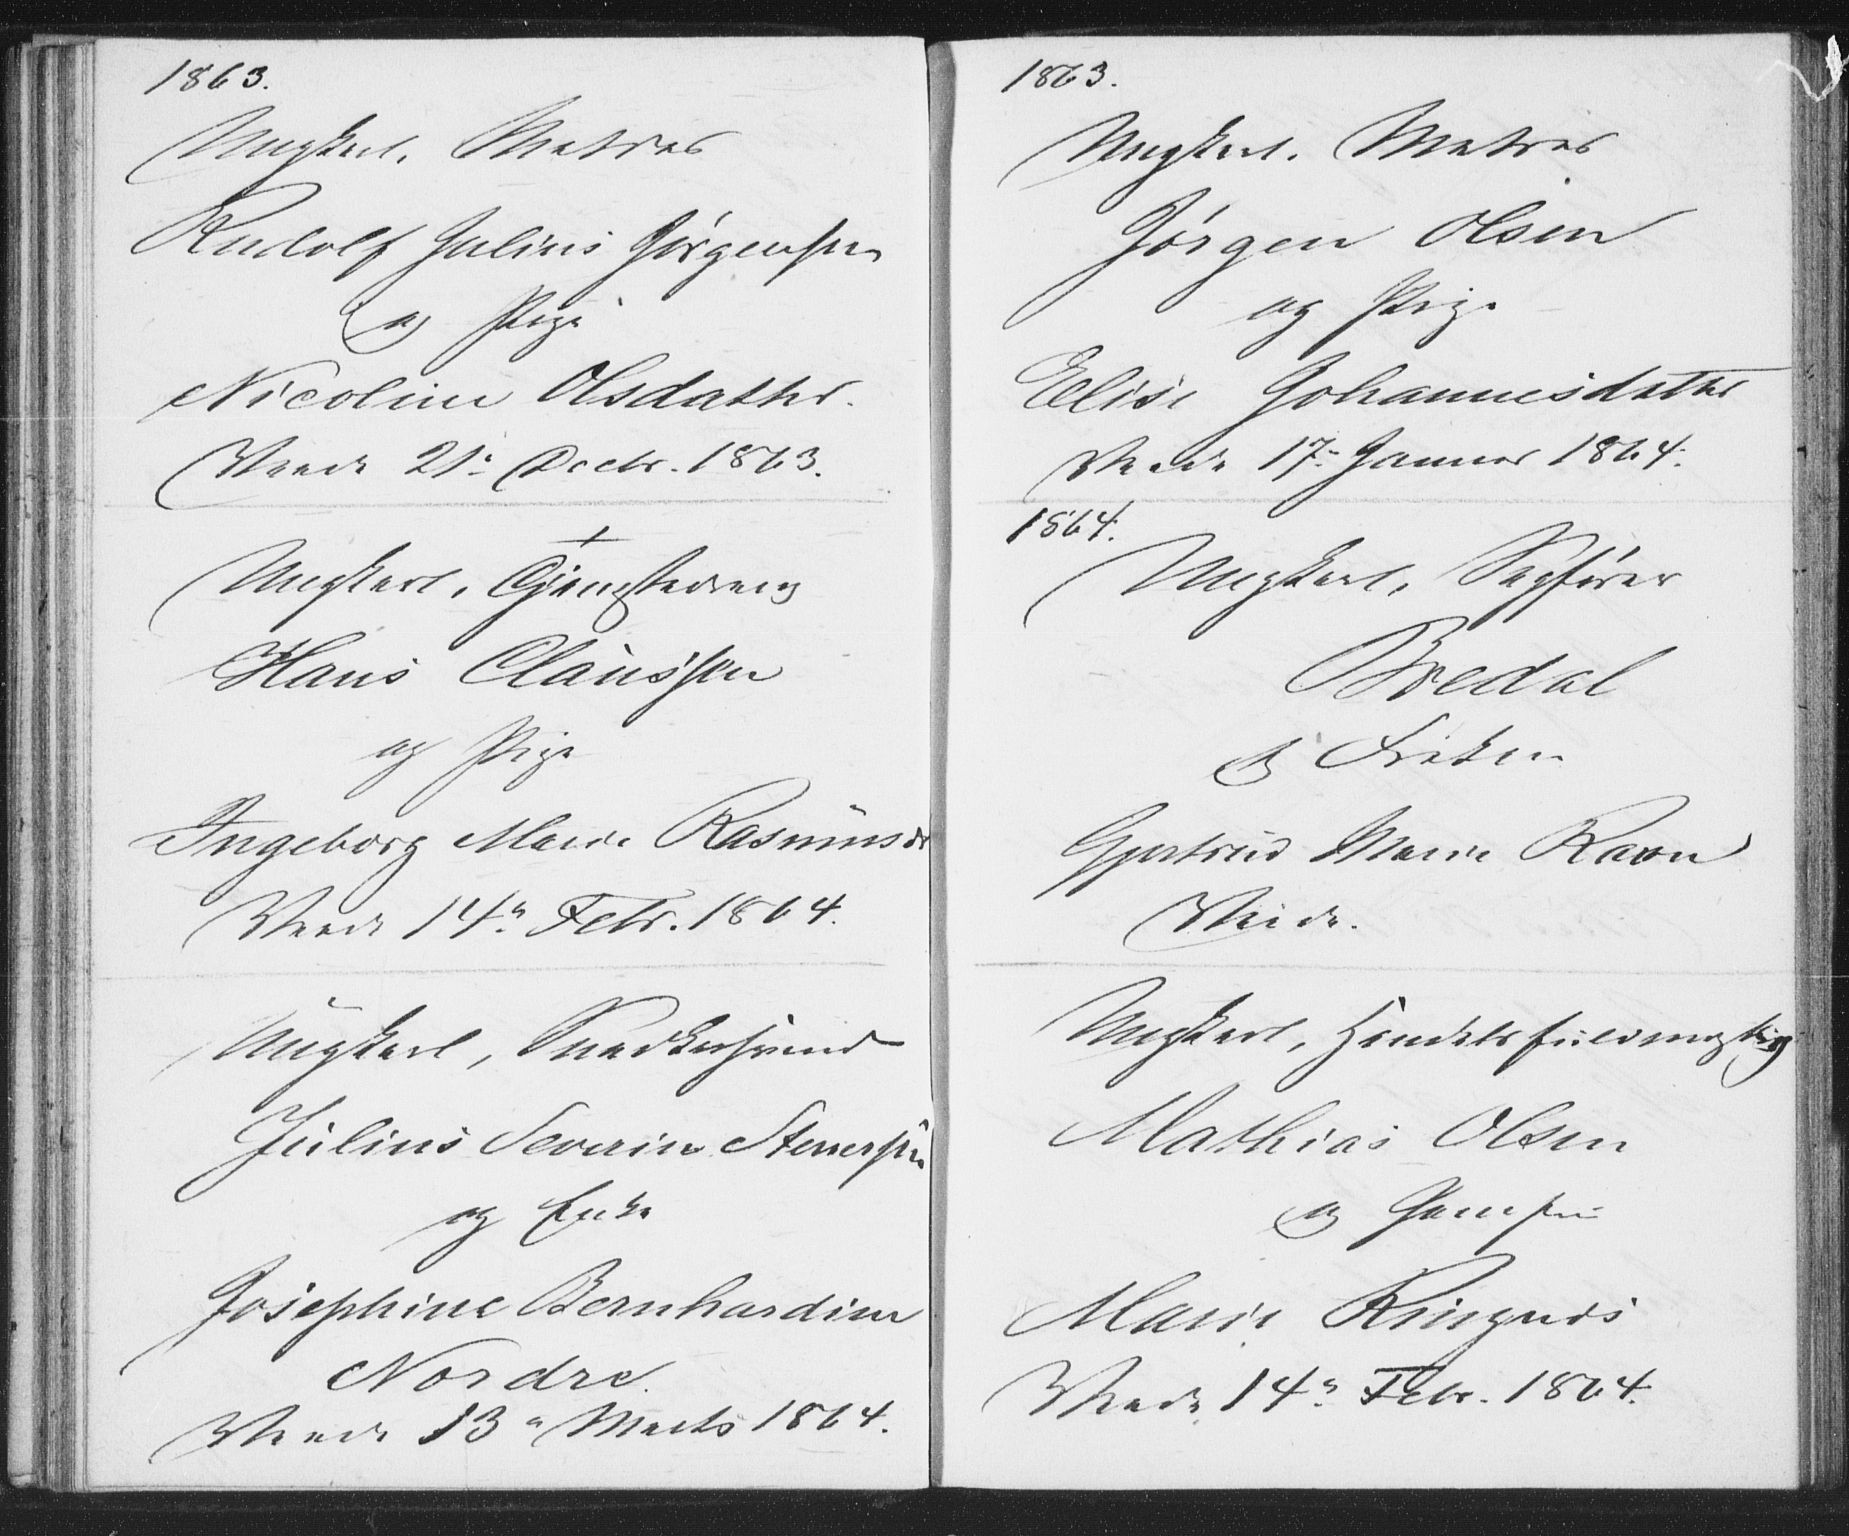 1863.
Ungkarl, Matros
Rudolf Julius Jørgensen
og Pige
Nicoline Olsdatter.
Viede 21de Decbr. 1863.
Ungkarl, Tjenestedreng
Hans Claussen
og Pige
Ingeborg Marie Rasmusdr
Viede 14de Febr. 1864.
Ungkarl, Snedkersvend
Julius Severin Stenersen
og Enke
Josephine Bernhardine
Nordre.
Viede 13de Marts 1864.
1863.
Ungkarl, Matros
Jørgen Olsen
og Pige
Elise Johannesdatter
Viede 17de Januar 1864.
1864.
Ungkarl, Sagfører
Bredal
og Frøken
Gjertrud Marie Ravn
Viede.
Ungkarl, Handelsfuldmægtig
Mathias Olsen
og Jomfru
Marie Ringnes
Viede 14de Febr. 1864.